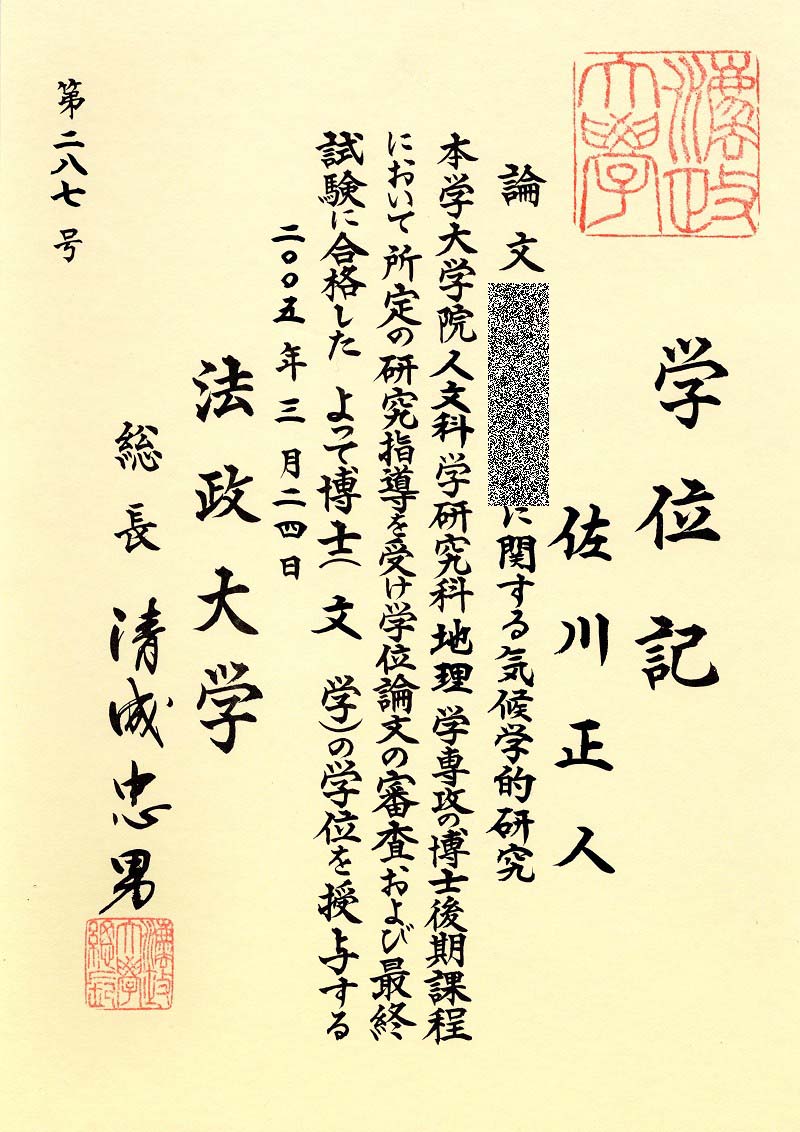 学位記
佐川正人
論文 に関する気候学的研究
本学大学院人文科学研究科地理学専攻の博士後期課程
において所定の研究指導を受け学位論文の審査、および最終
試験に合格した よって博士(文 学)の学位を授与する
二〇〇五年三月二四日
法政大学
総長 清成忠男
第二八七号